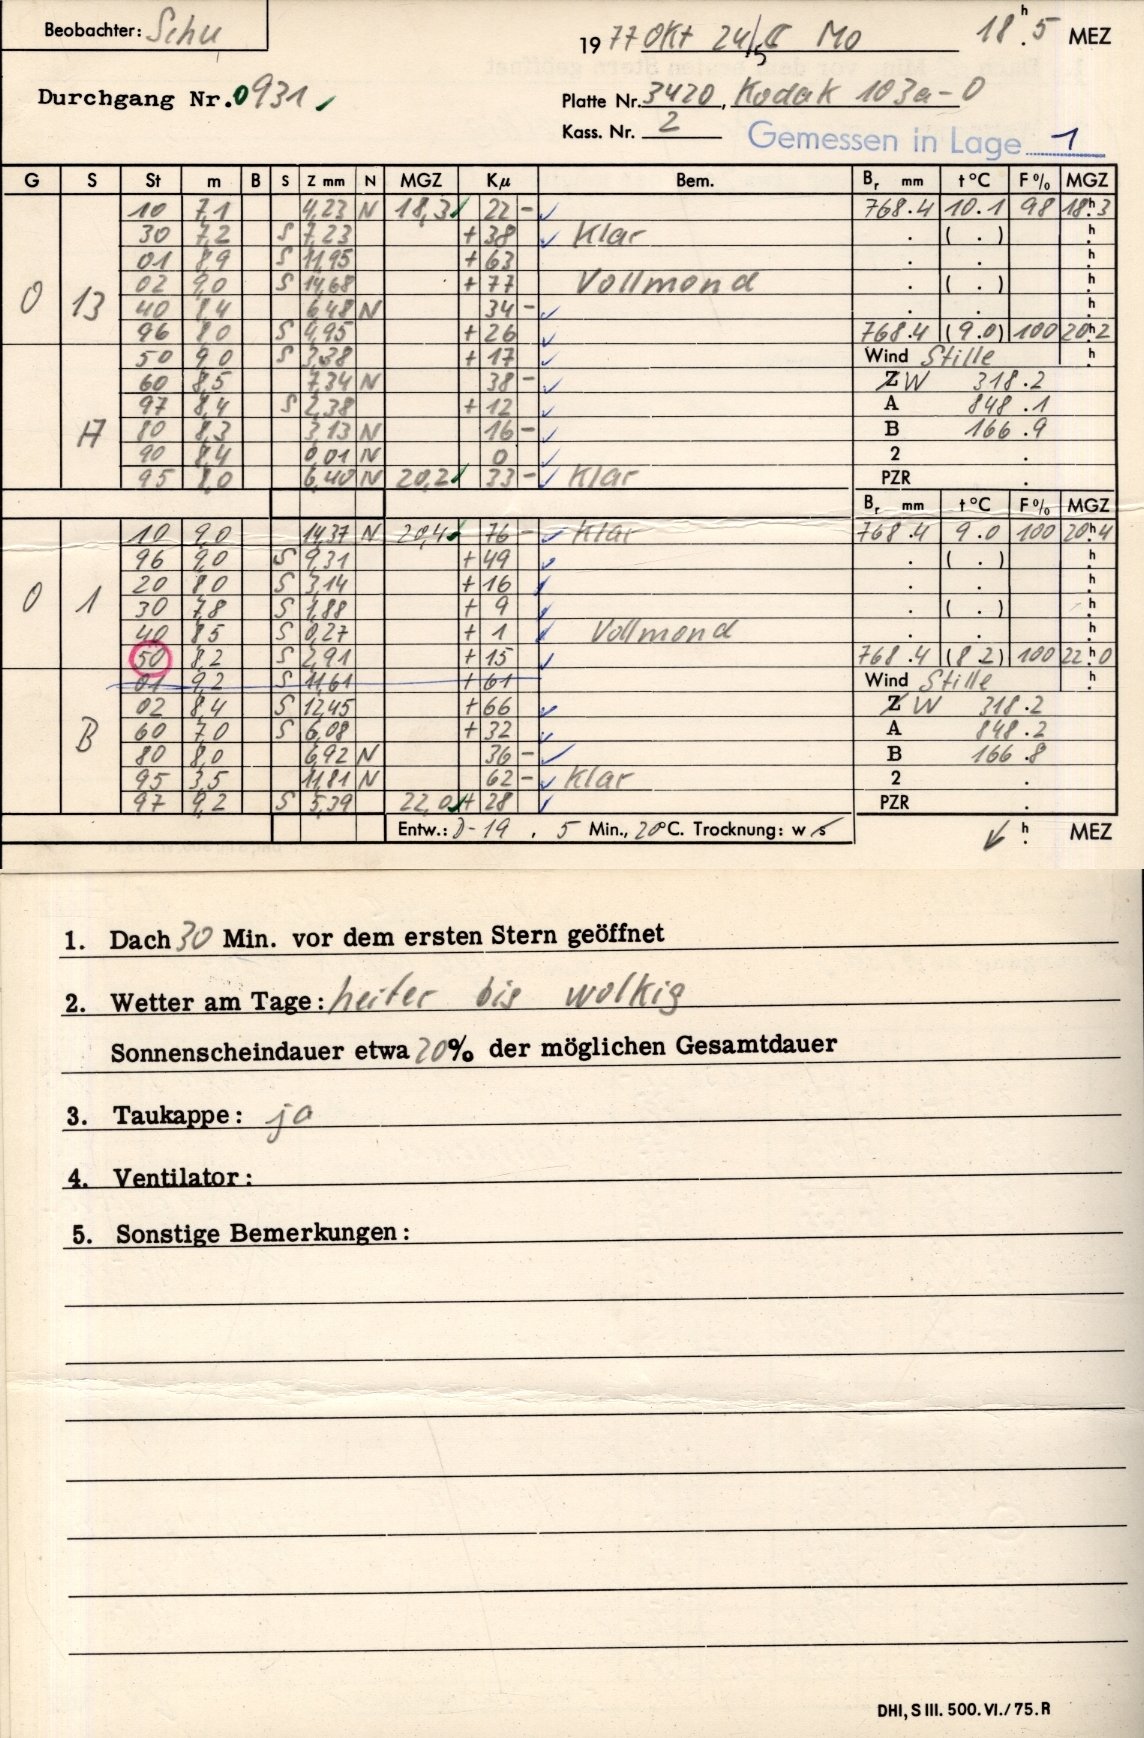 Beobachter: Schu
1977 Okt 24/25 Mo 18h.5 MEZ
Durchgang Nr. 0931
Platte Nr. 3420, Kodak 103a-O
Kass. Nr. 2
Gemessen in Lage 1
G S St m B S Z mm N MGZ Kμ Bem. Br mm t °C F % MGZ
10 7,1 4,23 N 18,3 22 - 768.4 10.1 98 18h.3
30 7,2 S 7,23 + 38 Klar . ( . ) h
01 8,9 S 11,95 + 63 . . h
0 13 02 9,0 S 14,68 + 77 Vollmond . ( . ) h
40 8,4 6,48 N 34 - . . h
96 8,0 S 4,95 + 26 768.4 (9.0) 100 20h.2
50 9,0 S 3,38 + 17 Wind Stille h
60 8,5 7,34 N 38 - Z W 318.2
97 8,4 S 2,38 + 12 A 848.1
A 80 8,3 3,13 N 16 - B 166.9
90 8,4 0,01 N 0 2 .
95 8,0 6,40 N 20,2 33 - Klar PZR .
Br mm t °C F % MGZ
10 9,0 14,37 N 20,4 76 - Klar 768.4 9.0 100 20h.4
96 9,0 S 9,31 + 49 . ( . ) h
20 8,0 S 3,14 + 16 . . h
0 1 30 7,8 S 1,88 + 9 . ( . ) h
40 8,5 S 0,27 + 1 Vollmond . . h
50 8,2 S 2,91 + 15 768.4 (8.2) 100 22h.0
01 9,2 S 11,61 + 61 Wind Stille h
02 8,4 S 12,45 + 66 Z W 318.2
B 60 7,0 S 6,08 + 32 A 848.2
80 8,0 6,92 N 36 - B 166.8
95 3,5 11,81 N 62 - Klar 2 .
97 9,2 S 5,39 22,0 + 28 PZR .
Entw.: D-19, 5 Min., 20°C. Trocknung: w s h MEZ
1. Dach 30 Min. vor dem ersten Stern geöffnet
2. Wetter am Tage: heiter bis wolkig
Sonnenscheindauer etwa 20% der möglichen Gesamtdauer
3. Taukappe: ja
4. Ventilator:
5. Sonstige Bemerkungen:
DHI, S III. 500. VI./75. R